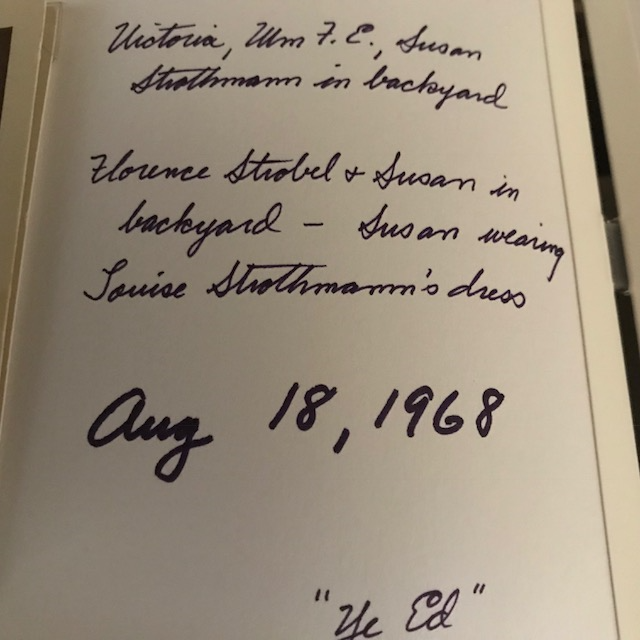 Victoria, Wm F. E., Susan
Strothmann in backyard
Florence Strobel & Susan in
backyard – Susan wearing
Louise Strothmann's dress
Aug 18, 1968
"Ye Ed"